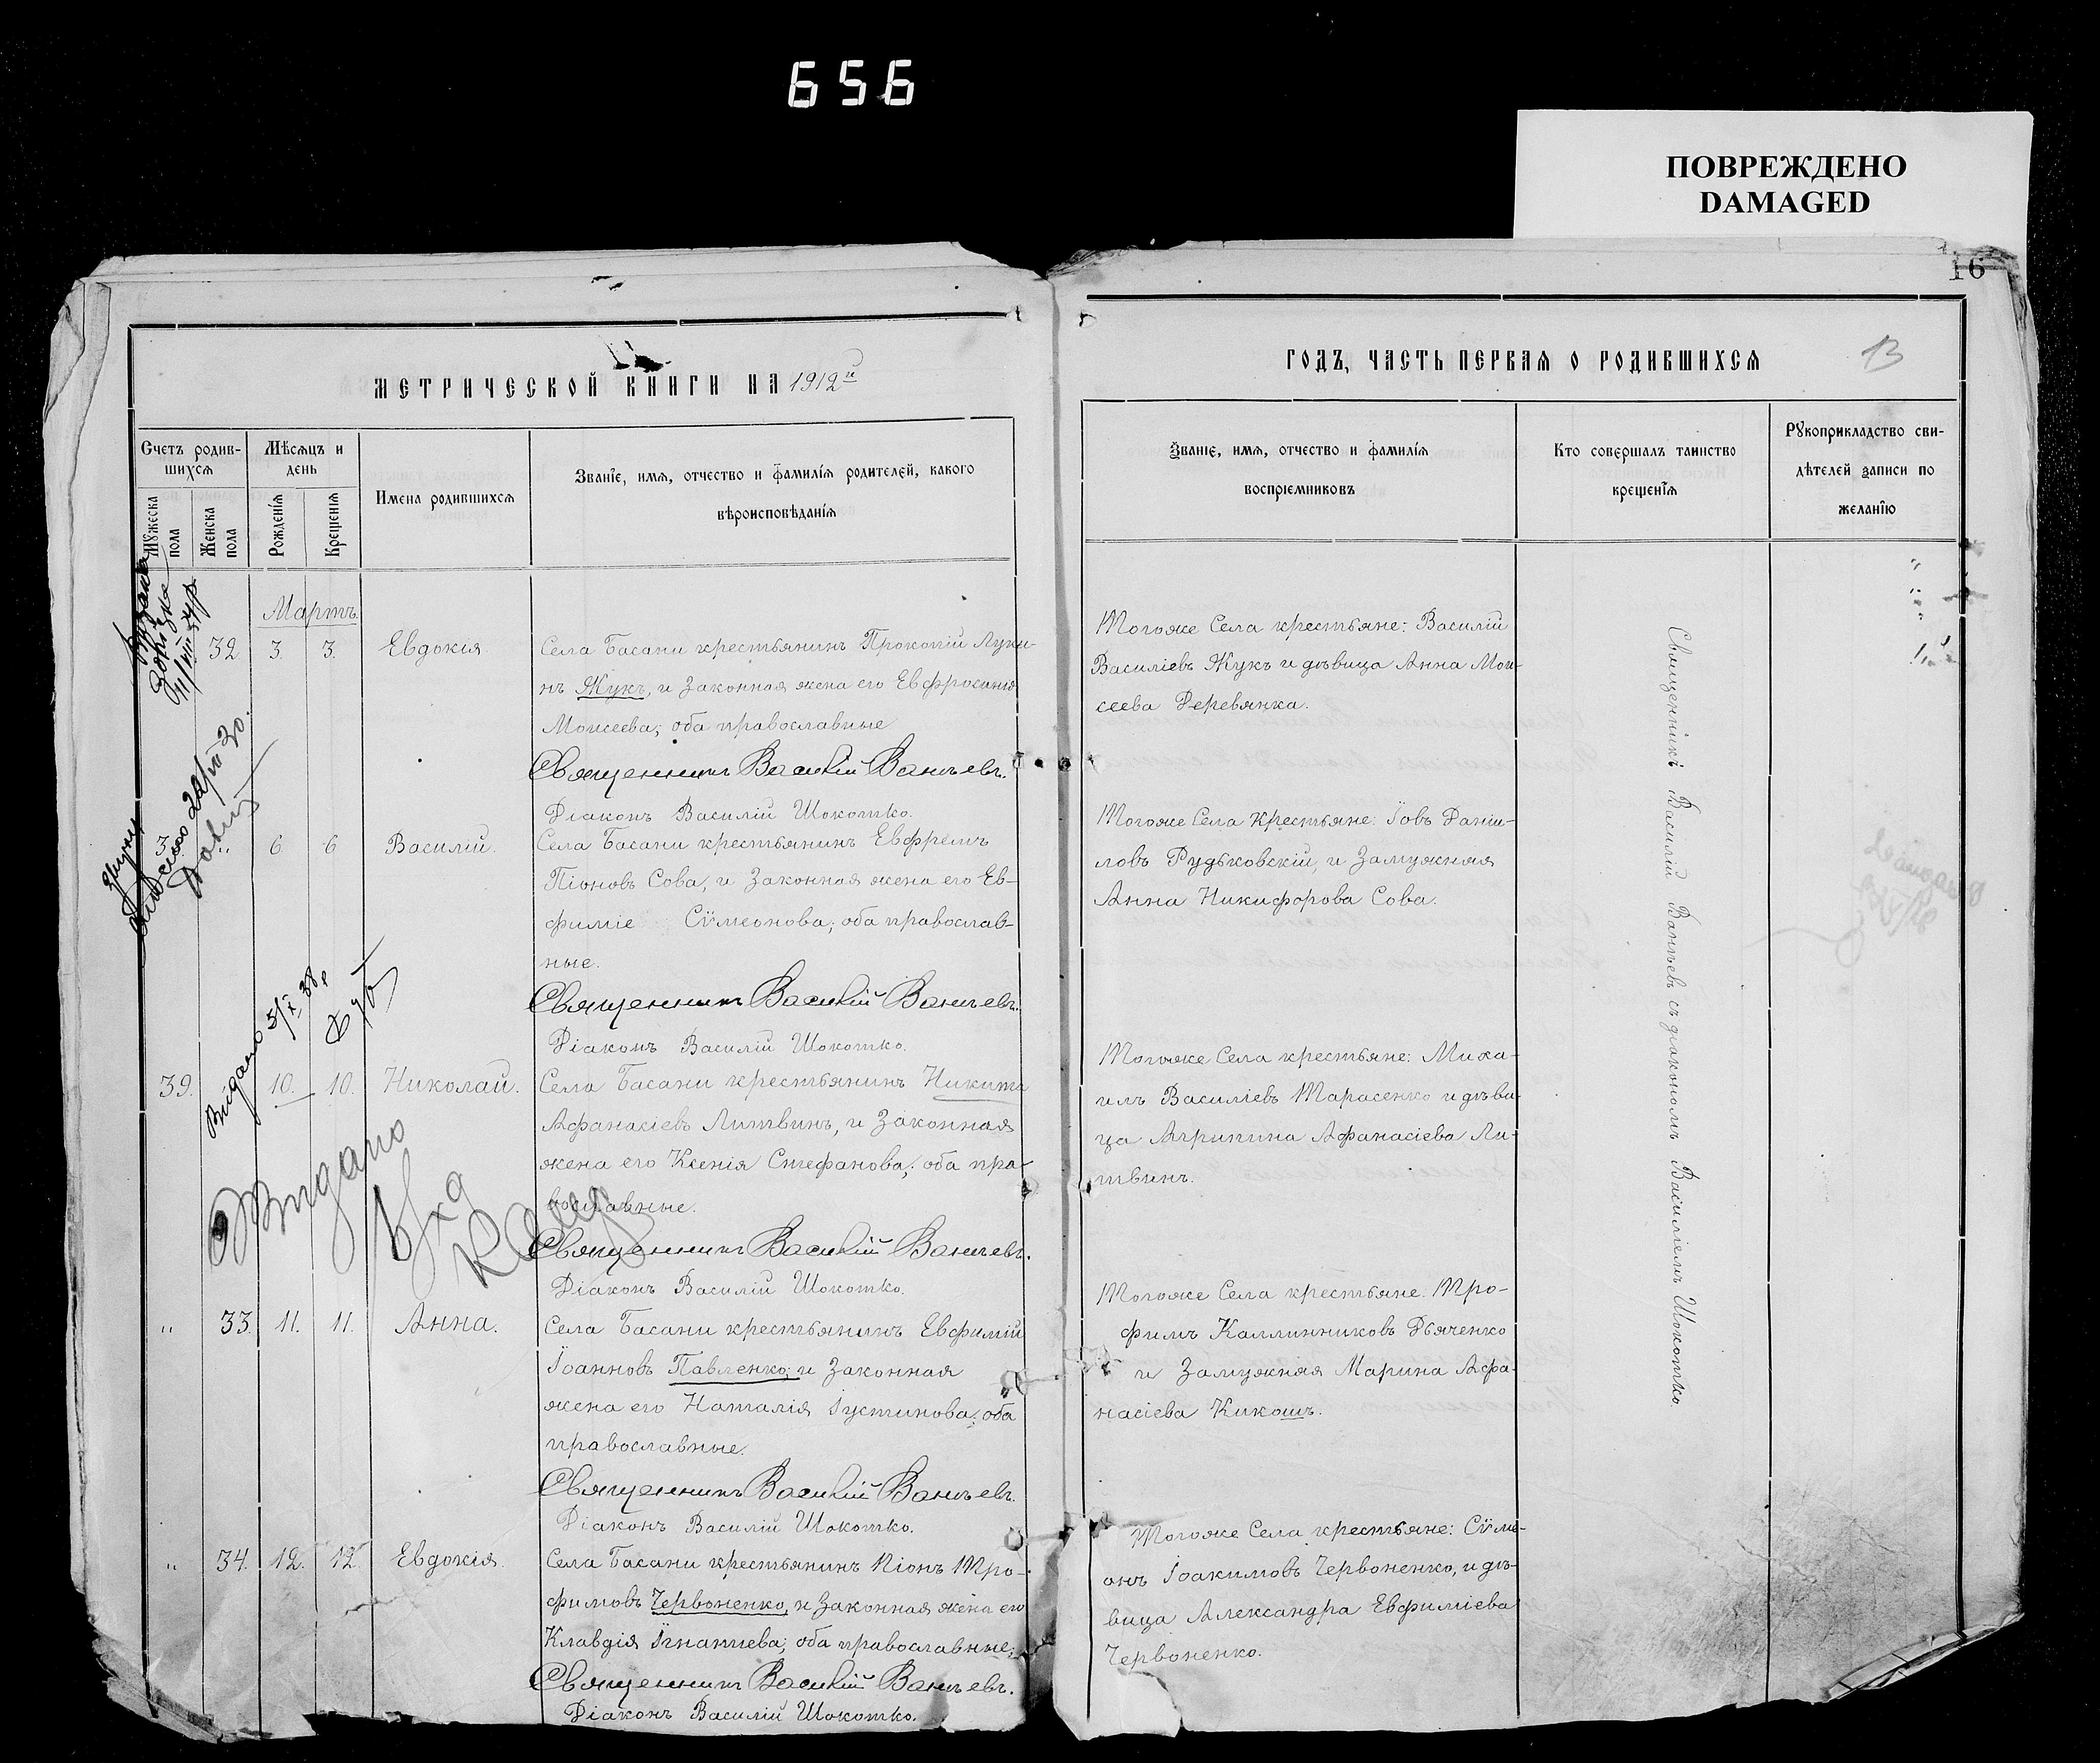 656
ПОВРЕЖДЕНО
DAMAGED
16
МЕТРИЧЕСКОЙ КНИГИ НА 1912й
Счетъ родив-
шихся
Мужеска
пола
Женска
пола
Мѣсяцъ и
день
Рожденія
Крещенія
Имена родившихся
Званіе, имя, отчество и фамилія родителей, какого
вѣроисповѣданія
Мартъ
32 3. 3. Евдокія
Села Басани крестьянинъ Прокопій Луки-
нъ Жукъ, и законная жена его Евфросинія
Моисеева; оба православные
Священникъ Василій Ванъевъ.
Діаконъ Василій Шокотко.
" 6 6 Василій.
Села Басани крестьянинъ Евфремъ
Піоновъ Сова, и законная жена его Ев-
фиміе Сѵмеонова; оба православ-
ные.
Священникъ Василій Ванъевъ.
Діаконъ Василій Шокотко.
39. 10. 10. Николай.
Села Басани крестьянинъ Никита
Афанасіевъ Литвинъ, и законная
жена его Ксенія Стефанова; оба пра-
вославные.
Священникъ Василій Ванъевъ.
Діаконъ Василій Шокотко.
" 33. 11. 11. Анна.
Села Басани крестьянинъ Евфимій
Іоанновъ Павленко; и законная
жена его Наталія Іустинова; оба
православные.
Священникъ Василій Ванъевъ.
Діаконъ Василій Шокотко.
" 34. 12. 12. Евдокія.
Села Басани крестьянинъ Піонъ Тро-
фимовъ Червоненко, и законная жена его
Клавдія Игнатиева; оба православные;
Священникъ Василій Ванъевъ.
Діаконъ Василій Шокотко.
Видано 5/X 38
Видано
ГОДЪ, ЧАСТЬ ПЕРВАЯ О РОДИВШИХСЯ
13
Званіе, имя, отчество и фамилія
воспріемниковъ
Кто совершалъ таинство
крещенія
Рукоприкладство сви-
дѣтелей записи по
желанію
Тогоже Села крестьяне: Василій
Василіевъ Жукъ и дѣвица Анна Мои-
сеева Деревянка.
Тогоже Села крестьяне: Іовъ Даніи-
ловъ Рудьковскій, и замужняя
Анна Никифорова Сова.
Тогоже Села крестьяне: Миха-
илъ Василіевъ Тарасенко и дѣви-
ца Агрипина Афанасіева Ли-
твинъ.
Тогоже Села крестьяне. Тро-
фимъ Каллинниковъ Дьяченко
и замужняя Марина Афа-
насіева Кикошъ.
Тогоже Села крестьяне: Сѵме-
онъ Іоакимовъ Червоненко, и дѣ-
вица Александра Евфиміева
Червоненко.
Священникъ Василій Ванъевъ съ діакономъ Василіемъ Шокотко.